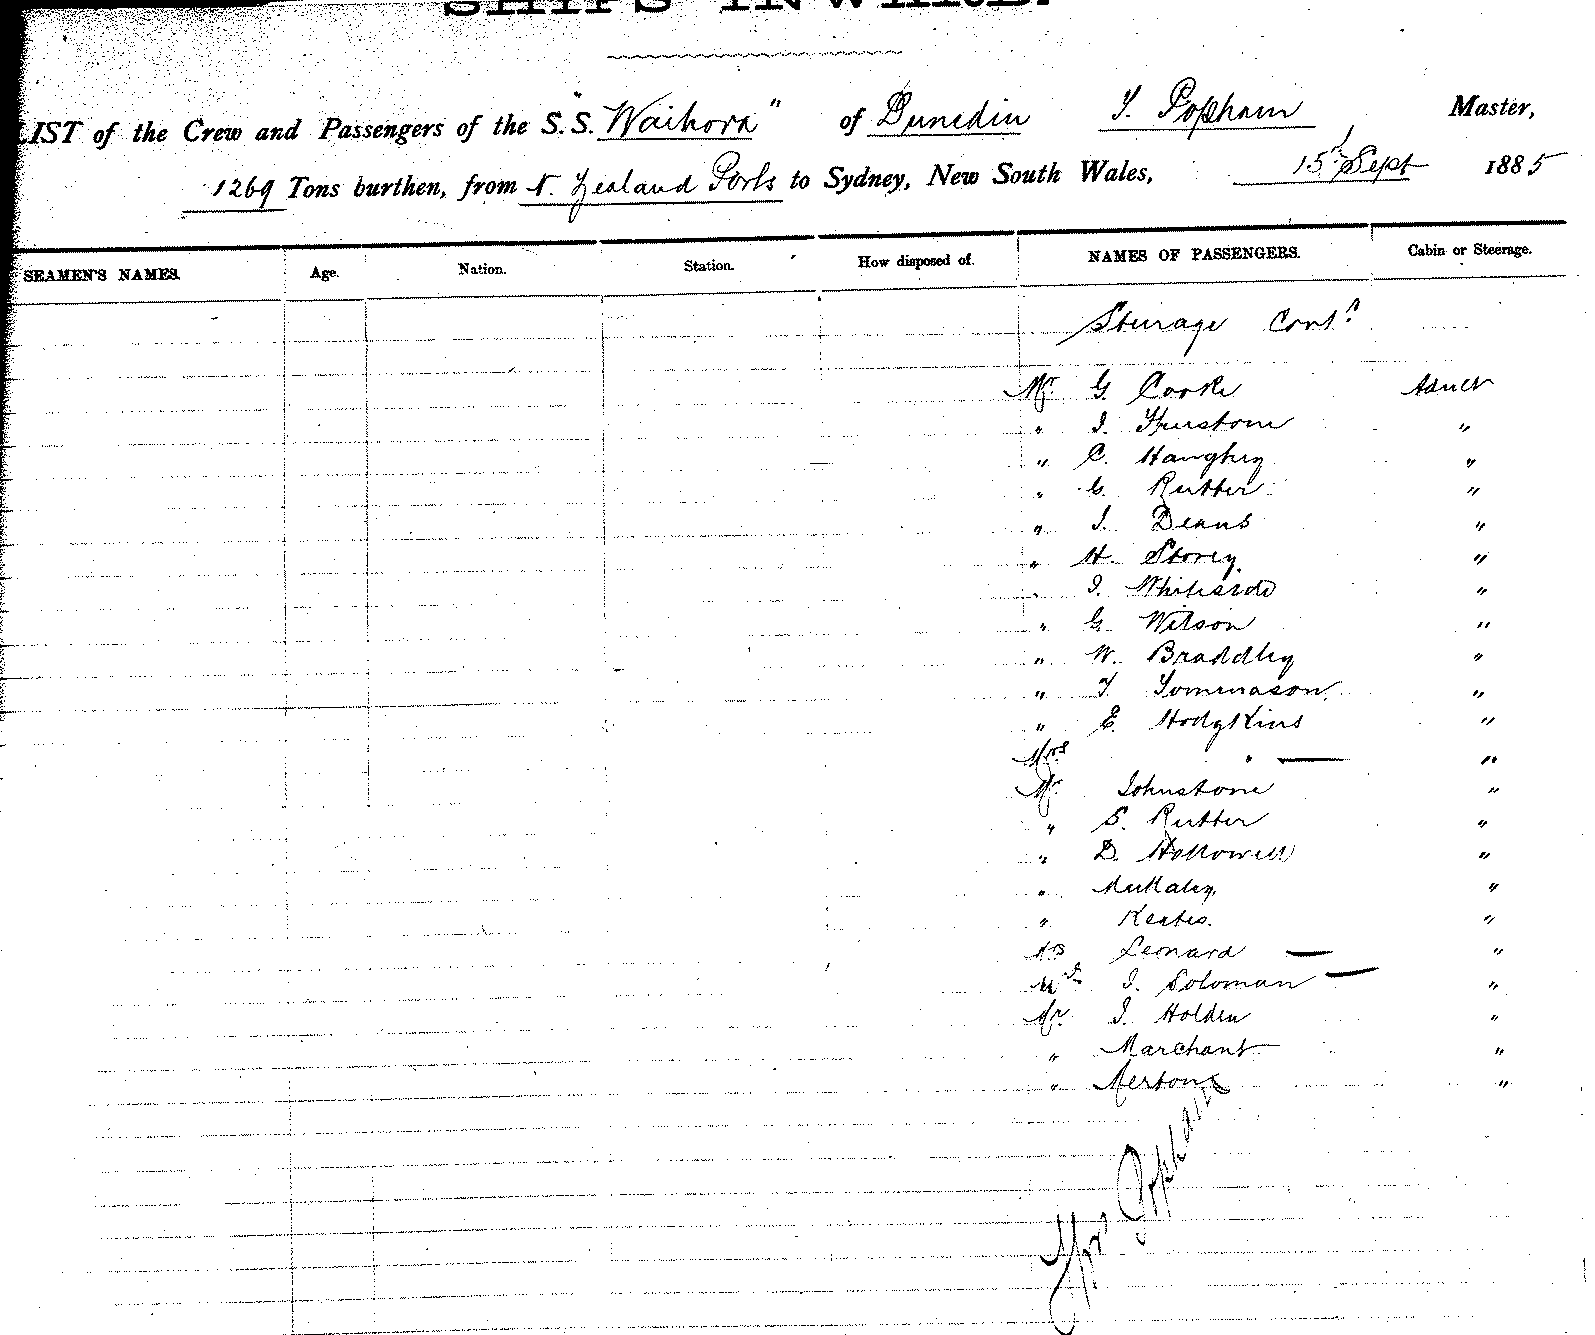 SHIPS INWARD.
LIST of the Crew and Passengers of the S.S. "Waihora" of Dunedin T. Popham Master,
1269 Tons burthen, from N. Zealand Ports to Sydney, New South Wales, 15th Sept 1885
SEAMEN'S NAMES. Age. Nation. Station. How disposed of. NAMES OF PASSENGERS. Cabin or Steerage.
Steerage Contd
Mr G. Cooke Adult
" J. Thurstone "
" C. Haughey "
" G. Rutter "
" J. Deans "
" H. Storey "
" J. Whiteside "
" G. Wilson "
" W. Braddley "
" T. Tommason "
" E. Hodgkins "
Mrs " — "
Mr Johnstone "
" S. Rutter "
" D. Hollowell "
" "
" Keates. "
Mrs Leonard — "
J. Soloman — "
Mr J. Holden "
" Marchant "
" Mertone "
Popham